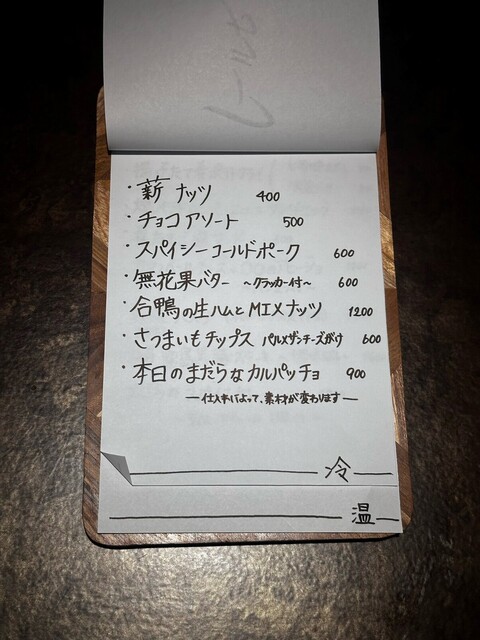 ・薪ナッツ 400
・チョコアソート 500
・スパイシーコールドポーク 600
・無花果バター 〜クラッカー付〜 600
・合鴨の生ハムとMIXナッツ 1200
・さつまいもチップス パルメザンチーズがけ 600
・本日のまだらなカルパッチョ 900
—仕入れによって、素材が変わります—
冷
温